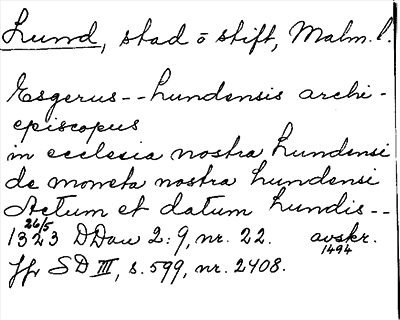 Lund, stad o stift, Malm. l.
Esgerus -- lundensis archi-
episcopus
in ecclesia nostra lundensi
de moneta nostra lundensi
Actum et datum Lundis --
26/5
1323 DDan 2:9, nr. 22. avskr.
1494
Jfr SD III, s. 599, nr. 2408.